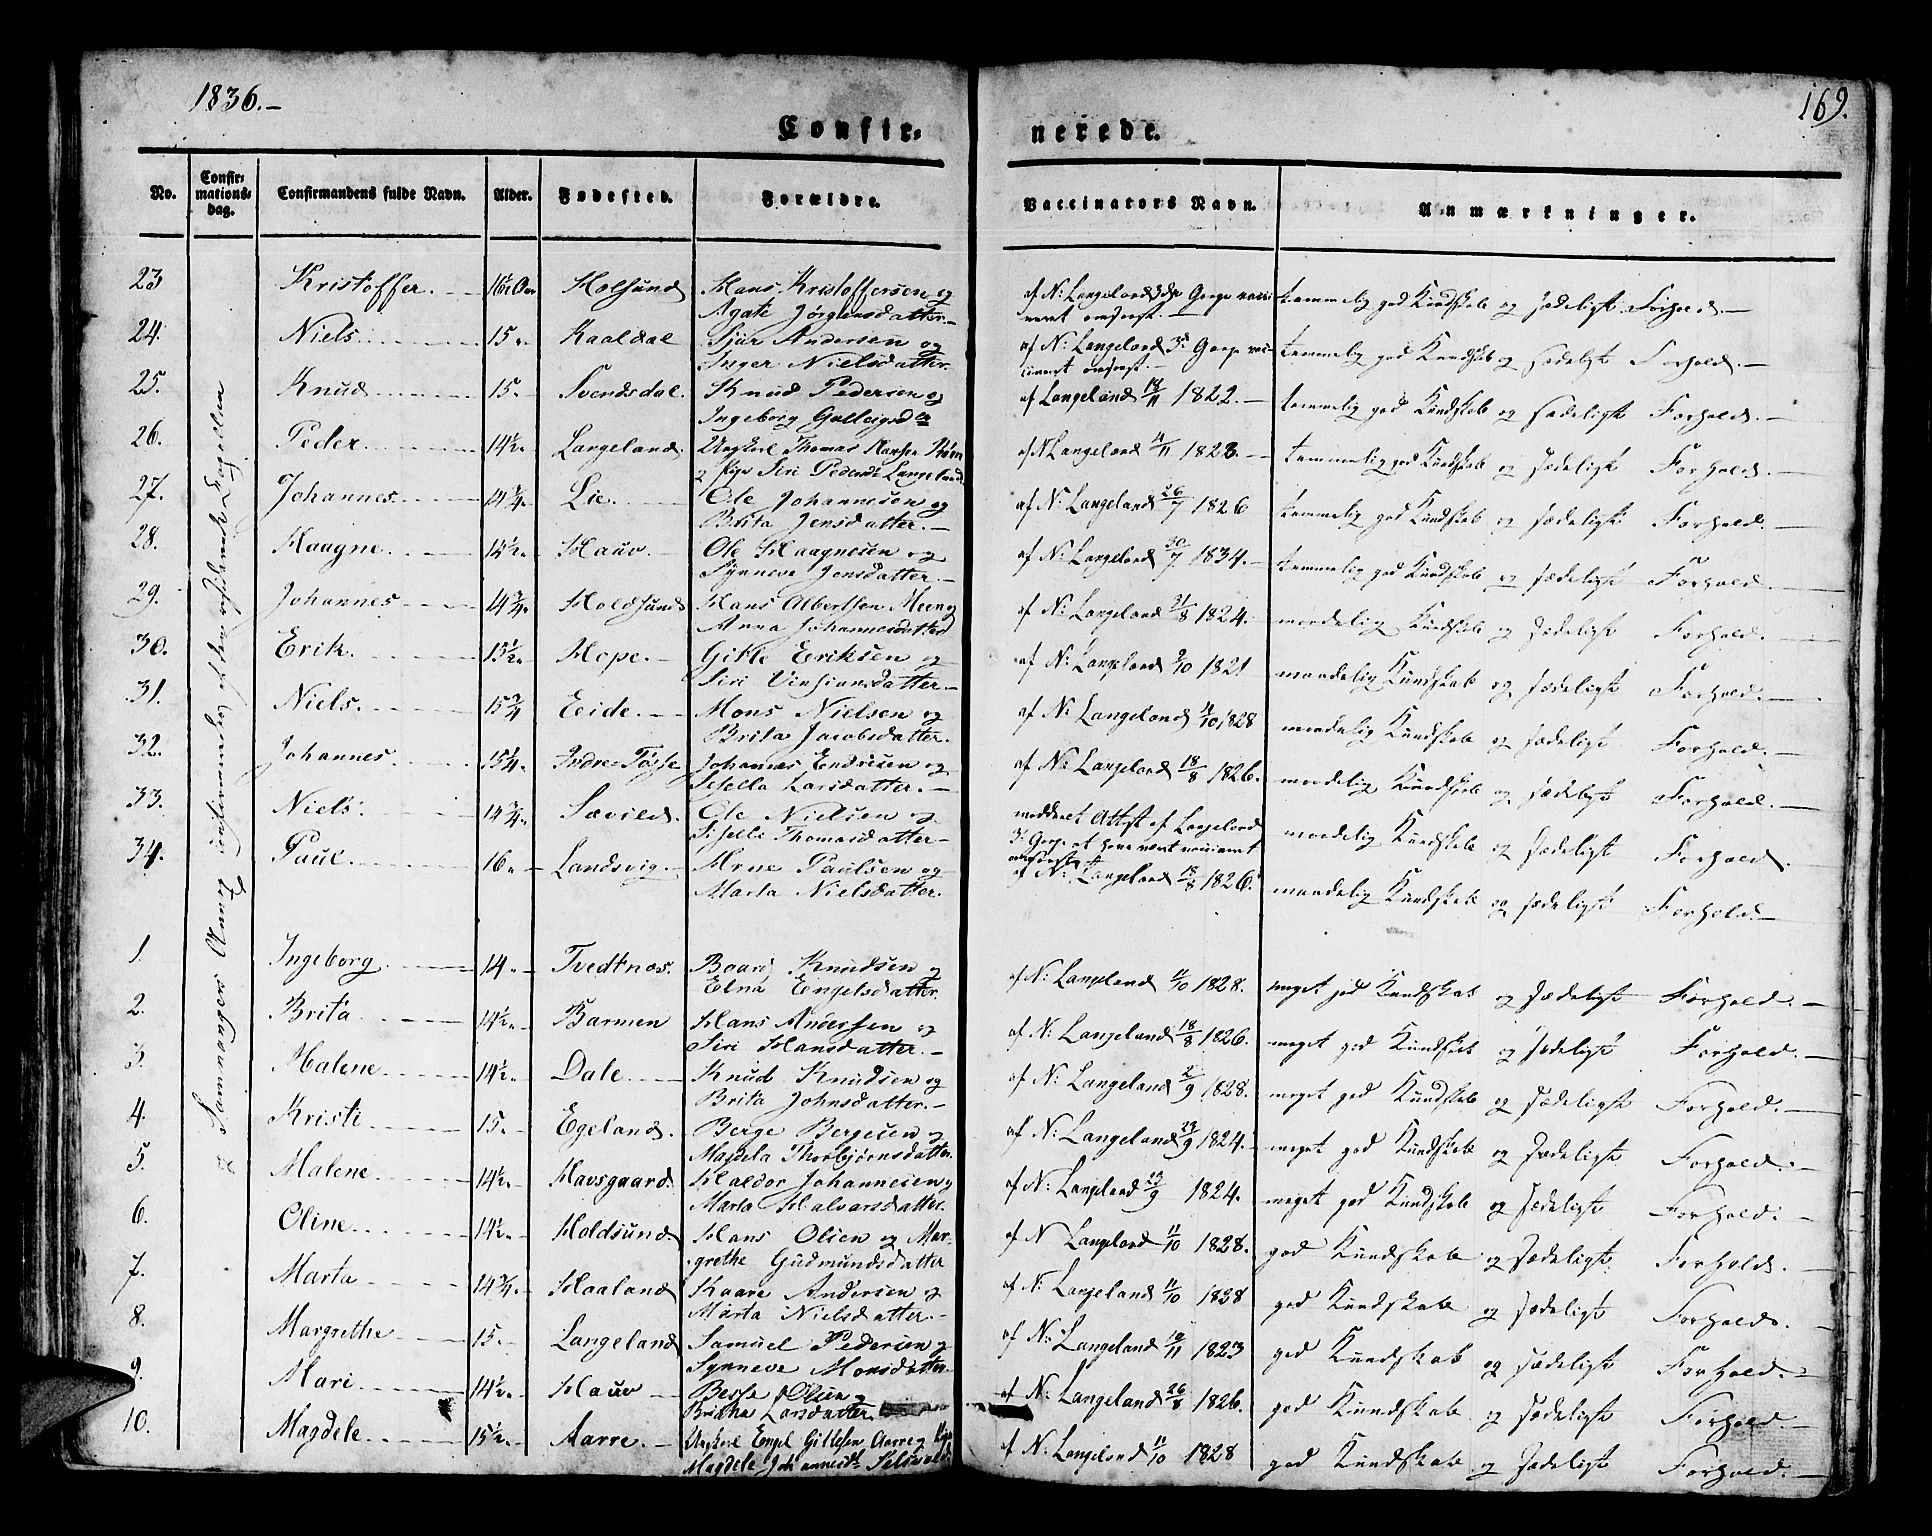 1836.-
169.
Confir- merede.
No. Confir-mations-dag. Confirmandens fulde Navn. Alder. Fødested. Forældre. Vaccinators Navn. Anmærkninger.
23 Kristoffer. Holsund Hans Kristoffersen og af N: Langeland temmelig god Kundskab og sædeligt Forhold.-
Agate Jørgensdatter.-
24. Niels 15 Kaaldal Sjur Andersen og af N: Langeland temmelig god Kundskab og sædeligt Forhold.-
Inger Nielsdatter.
25. Knud 15 Svendsdal. Knud Pedersen og af Langeland 18/11 1822.- temmelig god Kundskab og sædeligt Forhold.-
Ingeborg
26. Peder 14½ Langeland. Ungkarl Thomas Hansen af N Langeland 4/11 1823.- temmelig god Kundskab og sædeligt Forhold.-
og Pige Siri Pedersd: Langeland
27. Johannes 14¾ Lie Ole Johannesen og af N: Langeland 26/7 1826 temmelig god Kundskab og sædeligt Forhold.-
Brita Jensdatter.-
28. Haagne 14½ Hauv.- Ole Haagnesen og af N: Langeland 30/7 1834.- temmelig god Kundskab og sædeligt Forhold.-
Synneve Jensdatter.-
29. Johannes 14¾ Holdsund Hans Albertsen Meen og af N: Langeland 31/8 1824.- maadelig Kundskab og sædeligt Forhold.-
Anna Johannesdatter
30. Erik. 15½ Hope.- Gitle Eriksen og af N: Langeland 9/10 1821 maadelig Kundskab og sædeligt Forhold.-
Siri Vinsiansdatter.-
31. Niels. 15¾ Eide.- Mons Nielsen og af N: Langeland 4/10 1828 maadelig Kundskab og sædeligt Forhold.-
Brita Jacobsdatter.
32. Johannes 15¼ Indre-Tøsse Johannes Endresen og af N: Langeland 18/8 1826. maadelig Kundskab og sædeligt Forhold.-
Sesella Larsdatter.-
33. Niels: 14¾ Sævild. Ole Nielsen og meddeelt Attest af Langeland maadelig Kundskab og sædeligt Forhold.
Siselle Thomasdatter-
34. Paul 16 Landsvig.- Arne Paulsen og af N: Langeland 18/8 1826. maadelig Kundskab og sædeligt Forhold.-
Marta Nielsdatter.
1. Ingeborg 14 Tvedtnæs. Baard Knudsen og af N: Langeland 4/10 1828. meget god Kundskab og sædeligt Forhold.-
Elna Engelsdatter.
2. Brita 14½ Barmen Hans Andersen og af N: Langeland 18/8 1826. meget god Kundskab og sædeligt Forhold.-
Siri Hansdatter.-
3. Malene 14½ Dale Knud Knudsen og af N: Langeland 2/9 1828. meget god Kundskab og sædeligt Forhold.-
Brita Johnsdatter.-
4. Kristi 15 Egeland. Berge Bergesen og af N: Langeland 29/9 1824.- meget god Kundskab og sædeligt Forhold.-
Magdela Thorbjørnsdatter.
5. Malene 14½ Havsgaard. Haldor Johannesen og af N: Langeland 29/9 1824. meget god Kundskab og sædeligt Forhold.-
Marta Halvarsdatter.
6. Oline 14½ Holdsund Hans Olsen og Mar- af N Langeland 11/10 1828. god Kundskab og sædeligt Forhold.-
grethe Gudmundsdatter
7. Marta 14¾ Haaland Kaare Andersen og af N: Langeland 11/10 1828 god Kundskab og sædeligt Forhold.-
Marta Nielsdatter.-
8. Margrethe 15 Langeland Samuel Pedersen og af N: Langeland 19/11 1823 god Kundskab og sædeligt Forhold.-
Synneve Monsdatter.
9. Mari 14½ Hauv Berse Olsen og af N: Langeland 26/8 1826. god Kundskab og sædeligt Forhold.-
Larsdatter.
10. Magdele 15½ Aarre.- Ungkarl Engel Gittlesen Aarre og Pige af N: Langeland 11/10 1828 god Kundskab og sædeligt Forhold.-
Magdele Johannesd: